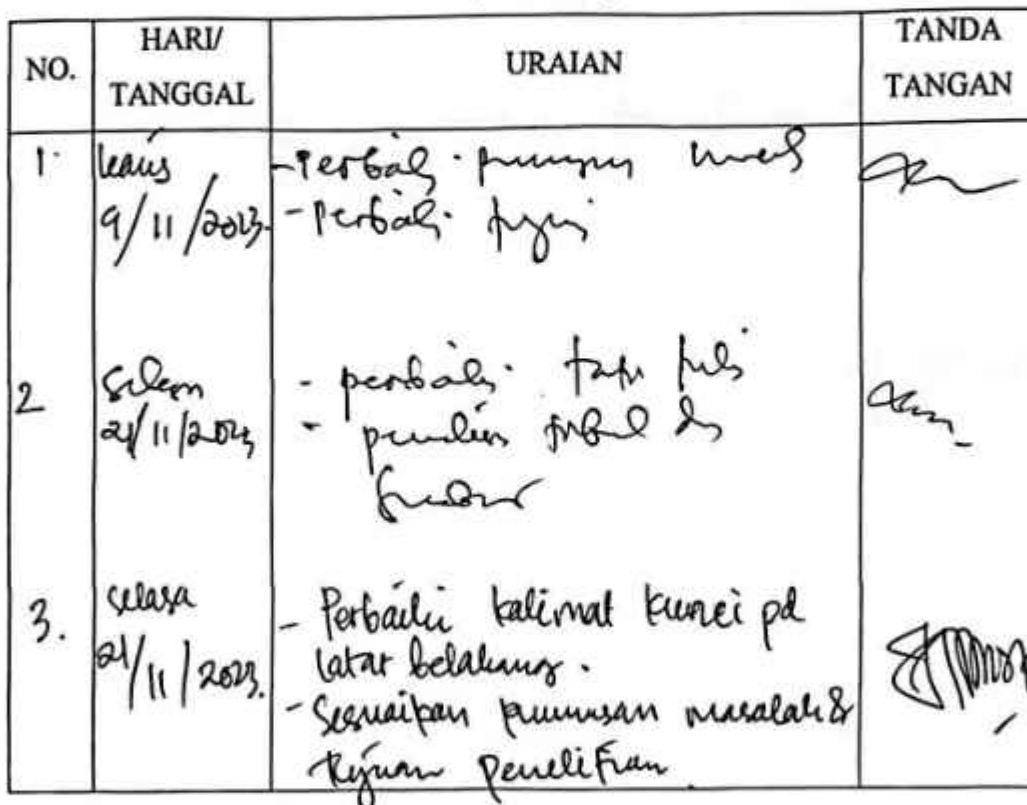 NO.
HARI/
TANGGAL
URAIAN
TANDA
TANGAN
1.
kamis
9/11/2023
- Perbaiki
- Perbaiki
2
21/11/2023
- perbaiki
- penulisan tabel
3.
selasa
21/11/2023.
- Perbaiki kalimat kunci pd
latar belakang.
- Sesuaikan rumusan masalah &
tujuan penelitian